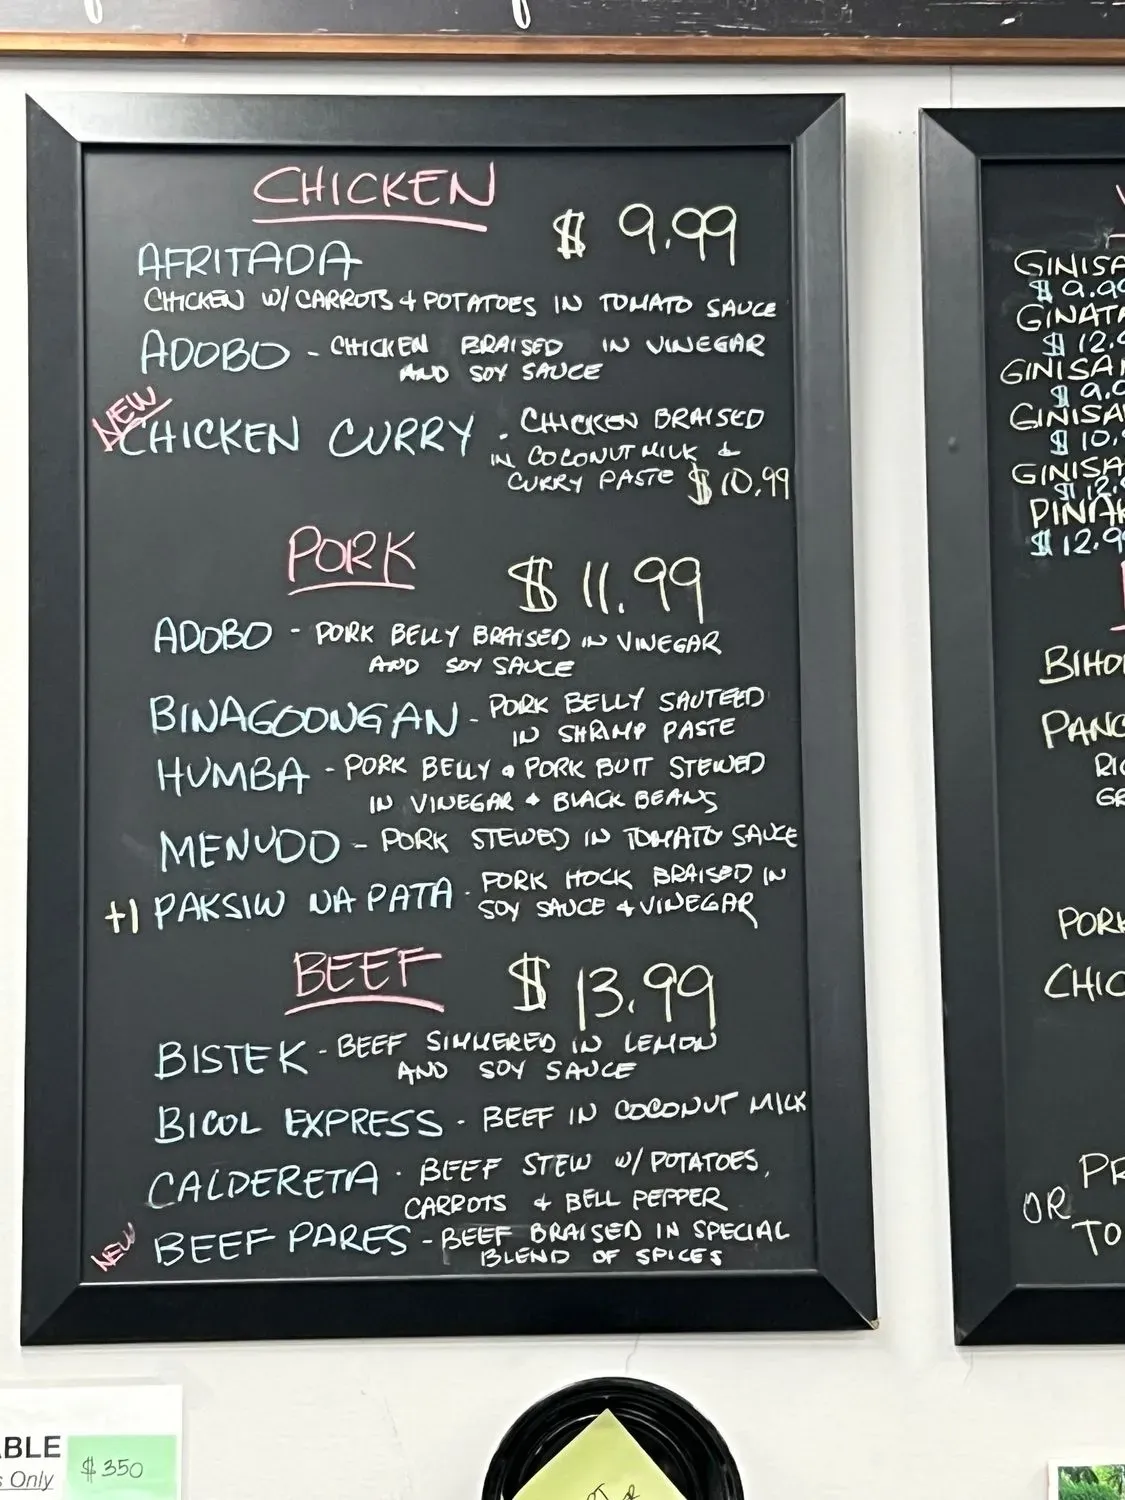 CHICKEN
$ 9.99
AFRITADA
CHICKEN W/ CARROTS & POTATOES IN TOMATO SAUCE
ADOBO - CHICKEN BRAISED IN VINEGAR
AND SOY SAUCE
NEW
CHICKEN CURRY - CHICKEN BRAISED
IN COCONUT MILK &
CURRY PASTE $10.99
PORK
$ 11.99
ADOBO - PORK BELLY BRAISED IN VINEGAR
AND SOY SAUCE
BINAGOONGAN - PORK BELLY SAUTEED
IN SHRIMP PASTE
HUMBA - PORK BELLY & PORK BUTT STEWED
IN VINEGAR & BLACK BEANS
MENUDO - PORK STEWED IN TOMATO SAUCE
+1 PAKSIW NA PATA - PORK HOCK BRAISED IN
SOY SAUCE & VINEGAR
BEEF
$ 13.99
BISTEK - BEEF SIMMERED IN LEMON
AND SOY SAUCE
BICOL EXPRESS - BEEF IN COCONUT MILK
CALDERETA - BEEF STEW W/ POTATOES,
CARROTS & BELL PEPPER
NEW
BEEF PARES - BEEF BRAISED IN SPECIAL
BLEND OF SPICES
GINISA
$ 9.99
GINATA
$ 12.9
GINISA
$ 9.9
GINISA
$ 10.
GINISA
$ 12.
PINAK
$ 12.9
BIHO
PANC
RI
GR
PORK
CHIC
PR
OR
TO
ABLE
s Only
$350